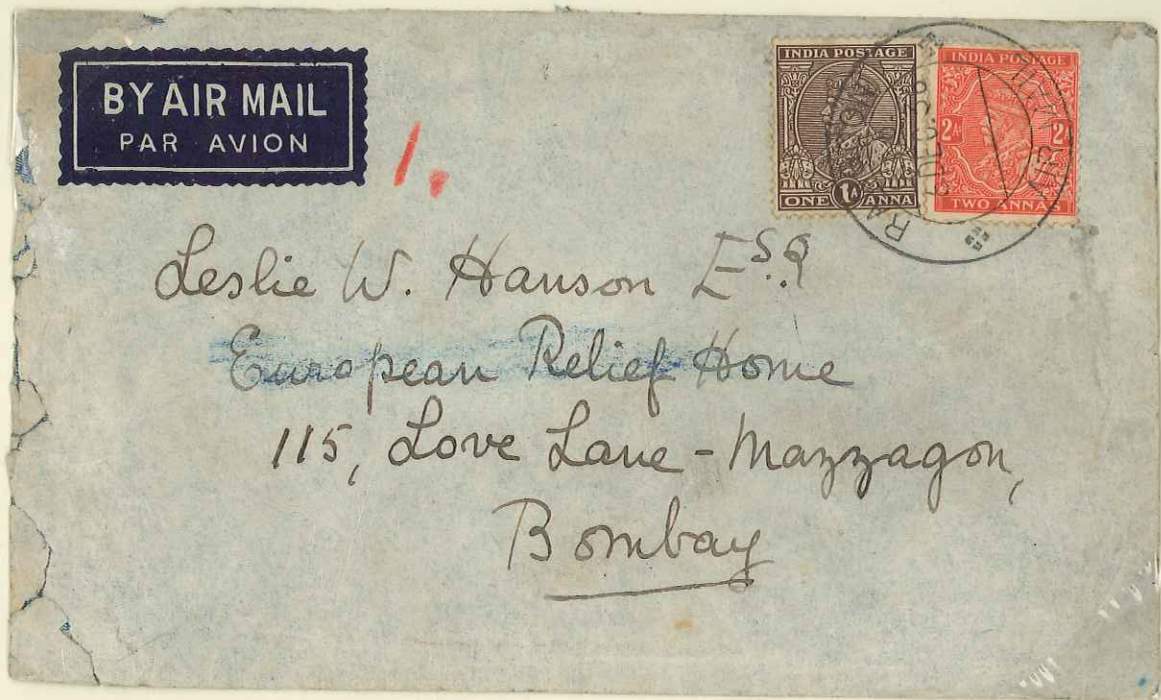 BY AIR MAIL
PAR AVION
1.
INDIA POSTAGE
1A
ONE ANNA
INDIA POSTAGE
2As 2As
TWO ANNAS
Leslie W. Hanson Esq
European Relief Home
115, Love Lane - Mazzagon,
Bombay